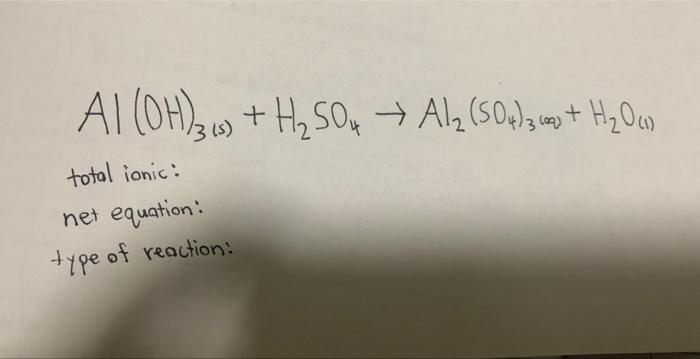 Al(OH)₃(s) + H₂SO₄ → Al₂(SO₄)₃(aq) + H₂O(l)
total ionic:
net equation:
type of reaction: